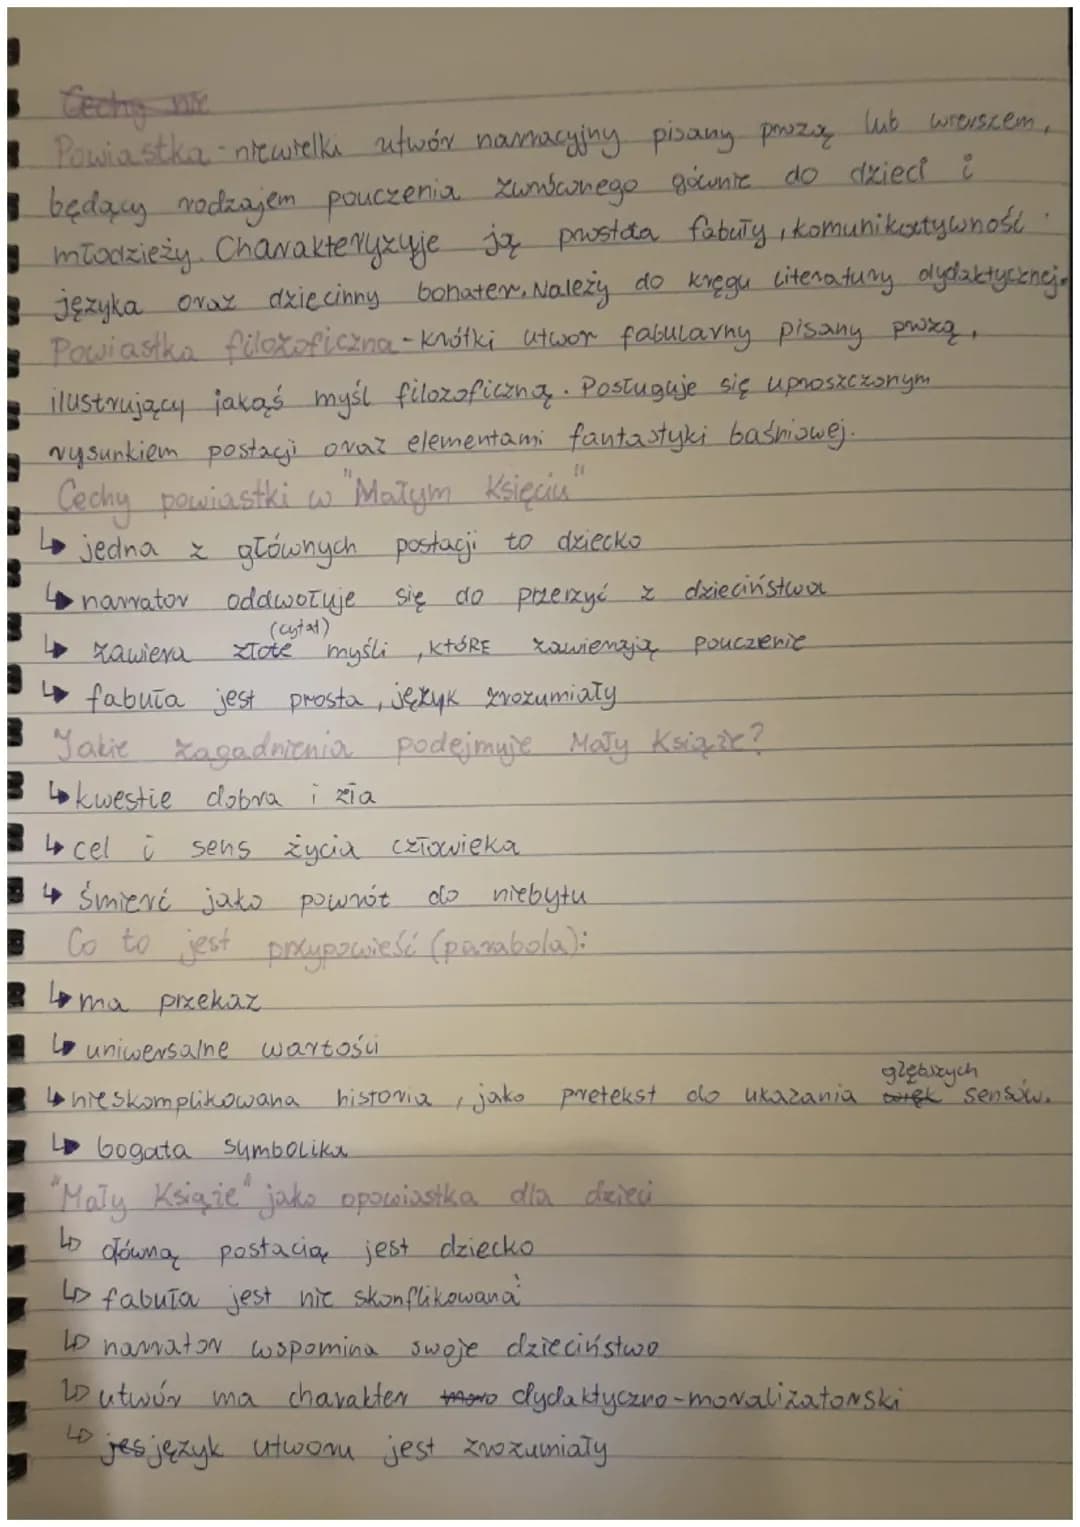 Cechy nie
Powiastka - niewielki utwór narracyjny pisany prozą lub wierszem,
będący rodzajem pouczenia zwróconego gównie do dzieci i
młodzieży. Charakteryzyje ją prostota fabuły, komunikatywność
języka oraz dziecinny bohater. Należy do kręgu literatury dydaktycznej.
Powiastka filozoficzna - krótki utwor fabularny pisany prozą,
ilustrujący jakąś myśl filozoficzną. Posługuje się uproszczonym
rysunkiem postacji oraz elementami fantastyki baśniowej.
Cechy powiastki w "Małym Księciu"
↳ jedna z głównych postacji to dziecko
↳ narrator oddwołuje się do przerzyć z dzieciństwa
(cytat)
↳ zawiera złote myśli, któRE zawierają pouczenie
↳ fabuła jest prosta, język zrozumiały
Jakie zagadnienia podejmuje Mały Książe?
↳ kwestie dobra i zła
↳ cel i sens życia człowieka
↳ śmierć jako powrót do niebytu
Co to jest przypowieść (parabola):
↳ ma przekaz
↳ uniwersalne wartości
głębszych
↳ nieskomplikowana historia, jako pretekst do ukazania sensów.
↳ bogata symbolika
"Mały Książe" jako opowiastka dla dzieci
↳ główną postacią jest dziecko
↳ fabuła jest nie skonflikowana
↳ narrator wspomina swoje dzieciństwo
↳ utwór ma charakter moro dydaktyczno-moralizatorski
↳ jes język utworu jest zrozumiały